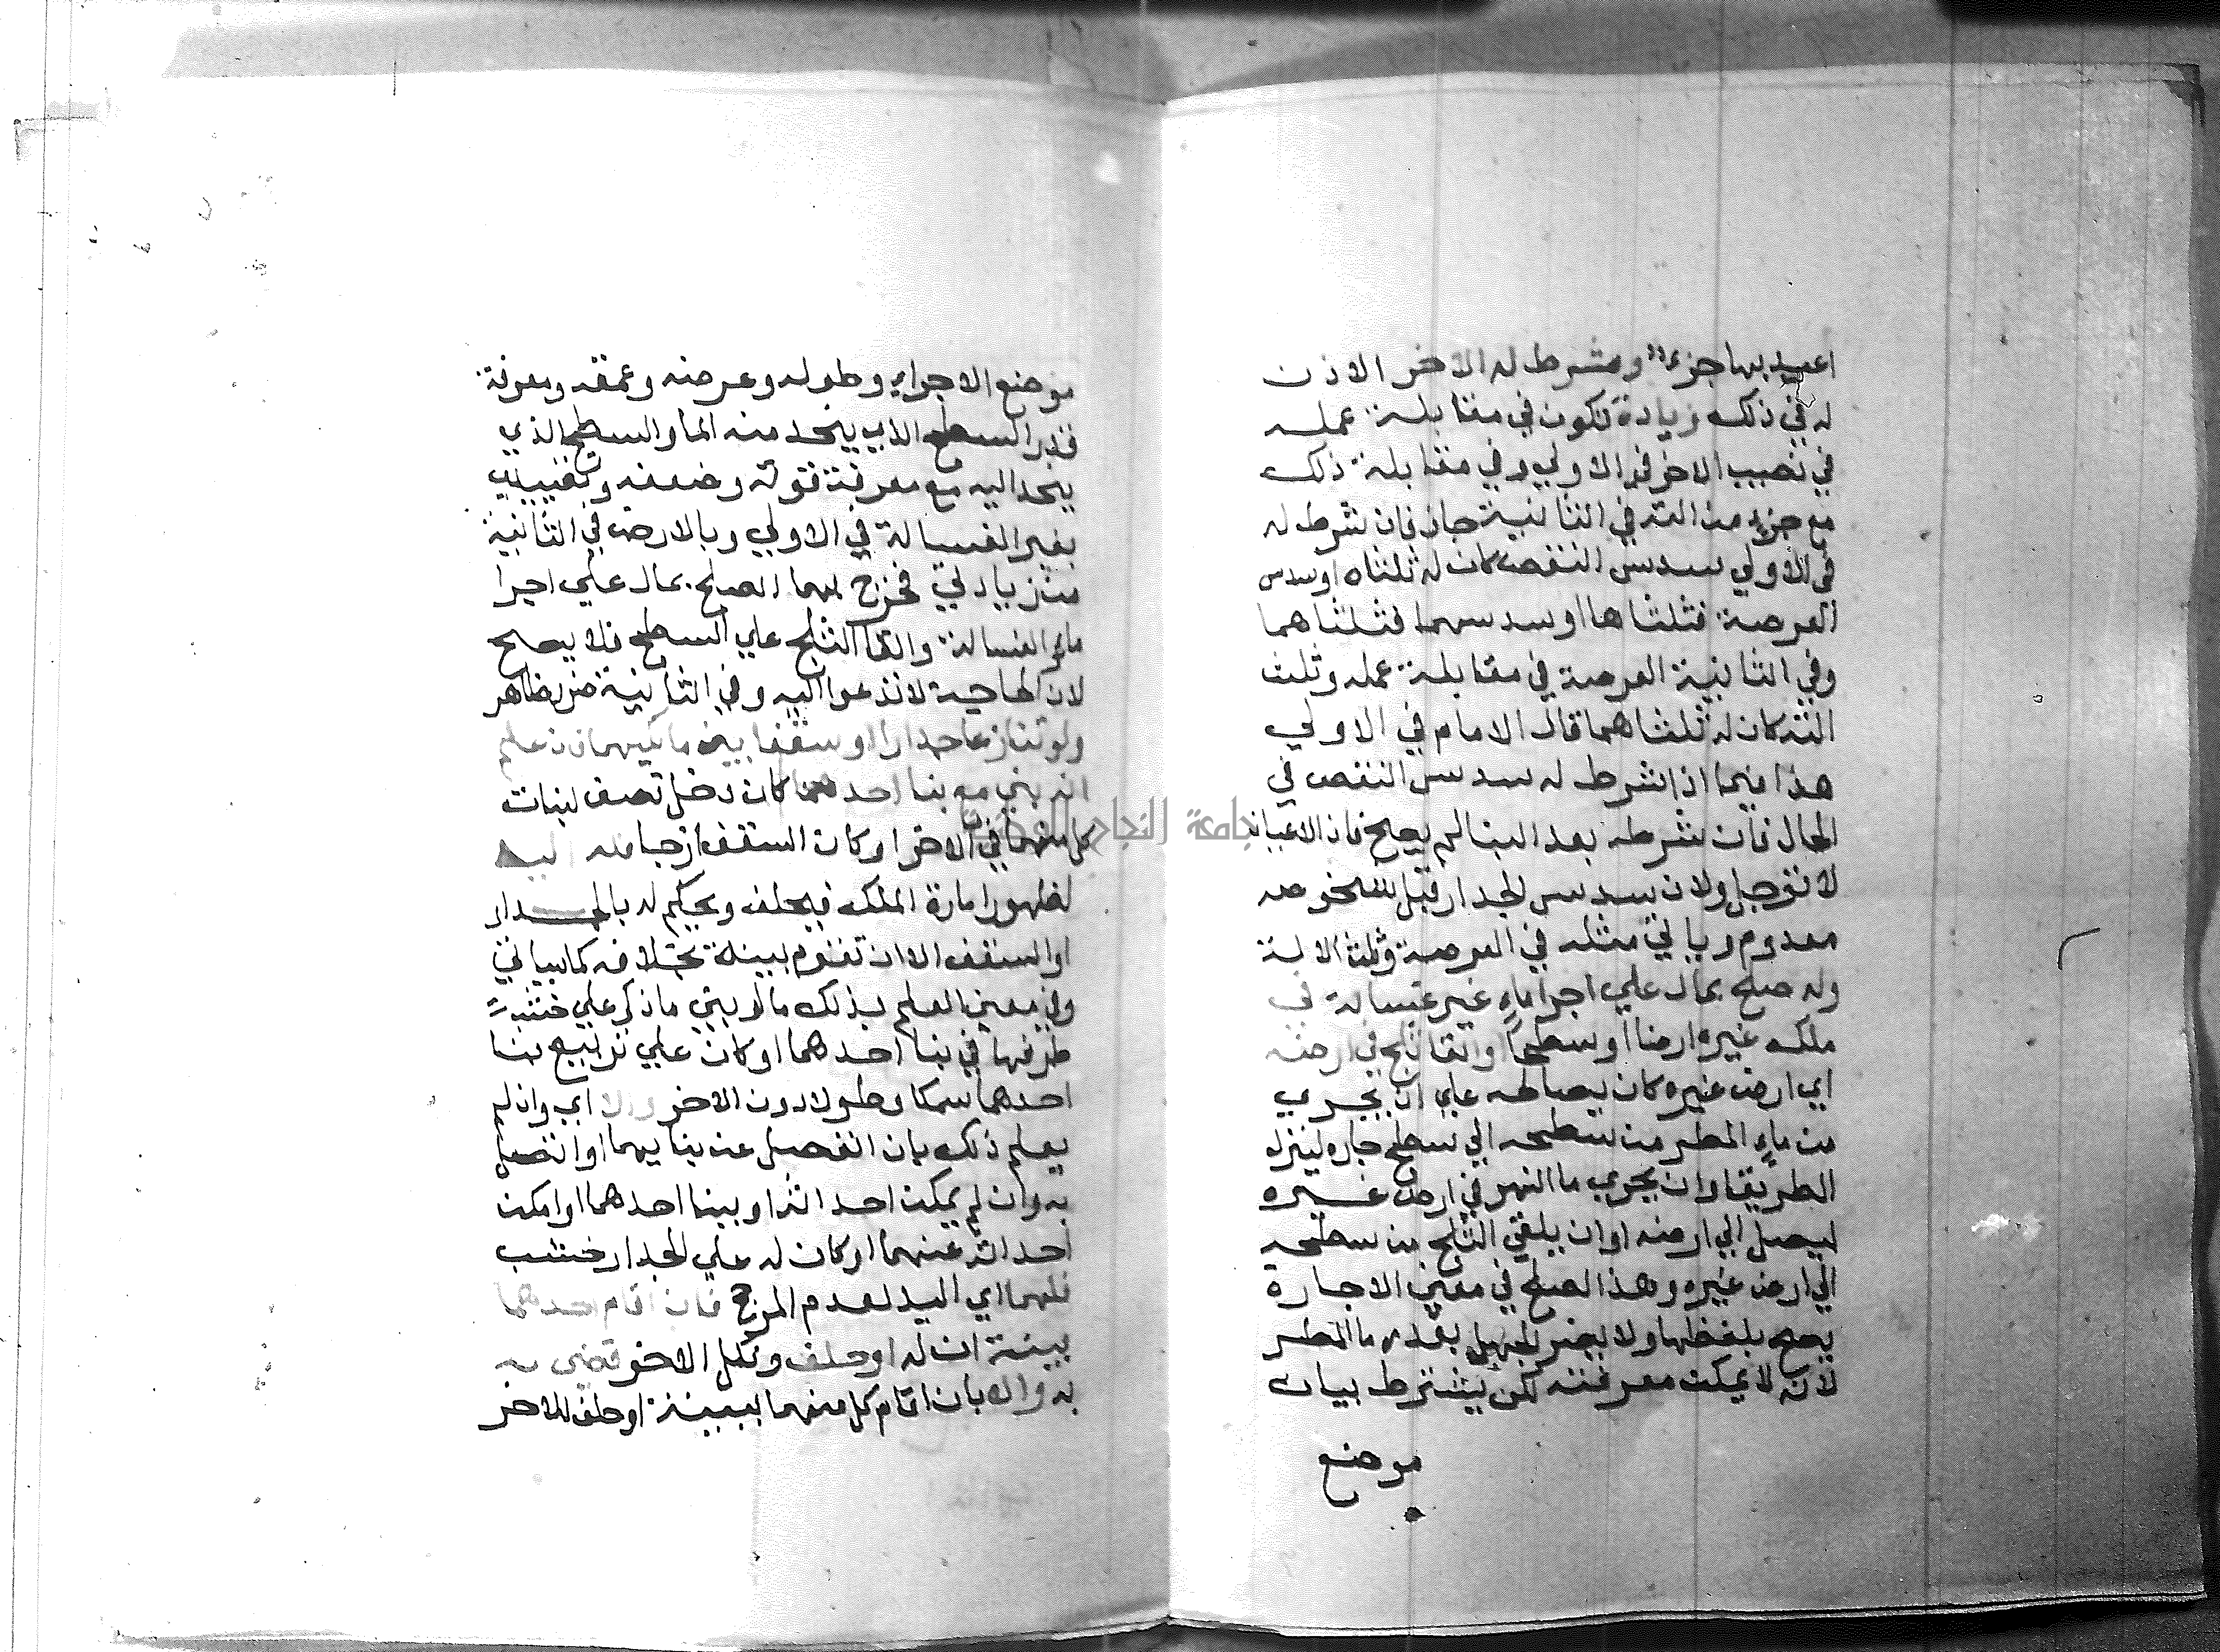 اعيد بها جزءا ومشرط له الاخر الاذن
له في ذلك زيادة تكون في مقابلة عمله
في نصيب الاخر في الاولي وفي مقابلة ذلك
مع جزء من الته في الثانية جاز فان شرط له
في الاولي سدس النقص كان له ثلثاه او سدس
العرصة فثلثاها او سدسهما فثلثاهما
وفي الثانية العرصة في مقابلة عمله وثلث
الته كان له ثلثاهما قال الامام في الاولي
هذا فيما اذا شرط له سدس النقص في
الحال فان شرطه بعد البنا لم يصح فان الاعيان
لا توجل ولان سدس الجدار قبل شخوصه
معدوم وياتي مثله في العرصة وثلث الالة
وله صلح بمال علي اجرا ماء غير غسالة في
ملك غيره ارضا او سطحا والقا ثلج في ارضه
اي ارض غيره كان يصالحه علي ان يجري
من ماء المطر من سطحه الي سطح جاره لينزل
الطريق او ان يجري ما النهر في ارض غيره
ليصل الي ارضه او ان يلقي الثلج من سطحه
الي ارض غيره وهذا الصلح في معني الاجارة
يصح بلفظها ولا يضر الجهل بقدر ما المطر
لانه لا يمكن معرفته لكن يشترط بيان
موضع
موضع الاجراء وطوله وعرضه وعمقه ومعرفة
قدر السطح الذي ينحدر منه الما والسطح الذي
ينحدر اليه مع معرفة قوته وضعفه وتقييدي
بغير الغسالة في الاولي وبالارض في الثانية
من زيادتي فخرج بهما الصلح بمال علي اجرا
ماء الغسالة والقا الثلج علي السطح فلا يصح
لان الحاجة لا تدعوا اليه وفي الثانية ضرر ظاهر
ولو تنازعا جدارا او سقفا بين ملكيهما فان علم
انه بني مع بنا احدهما كان دخل نصف لبنات
كل منهما في الاخر او كان السقف ازجا فله اليد
لظهور امارة الملك فيحلف ويحكم له بالجدار
او السقف الا ان تقوم بينة بخلافه كما سياتي
وفي معني العلم بذلك ما لو بني ما ذكر علي خشبة
طرفها في بنا احدهما او كان علي تربيع بنا
احدهما سمكا وطولا دون الاخر والا اي وان لم
يعلم ذلك بان انفصل عن بنايهما او اتصل
به وان لم يمكن احداثه او ببنا احدهما او امكن
احداثه عنهما او كان له علي الجدار خشب
فلهما اي اليد لعدم المرجح فان اقام احدهما
بينة انه له او حلف ونكل الاخر قضي له
به والا بان اقام كل منهما بينة او حلف للاخر
جامعة النجاح الوطنية